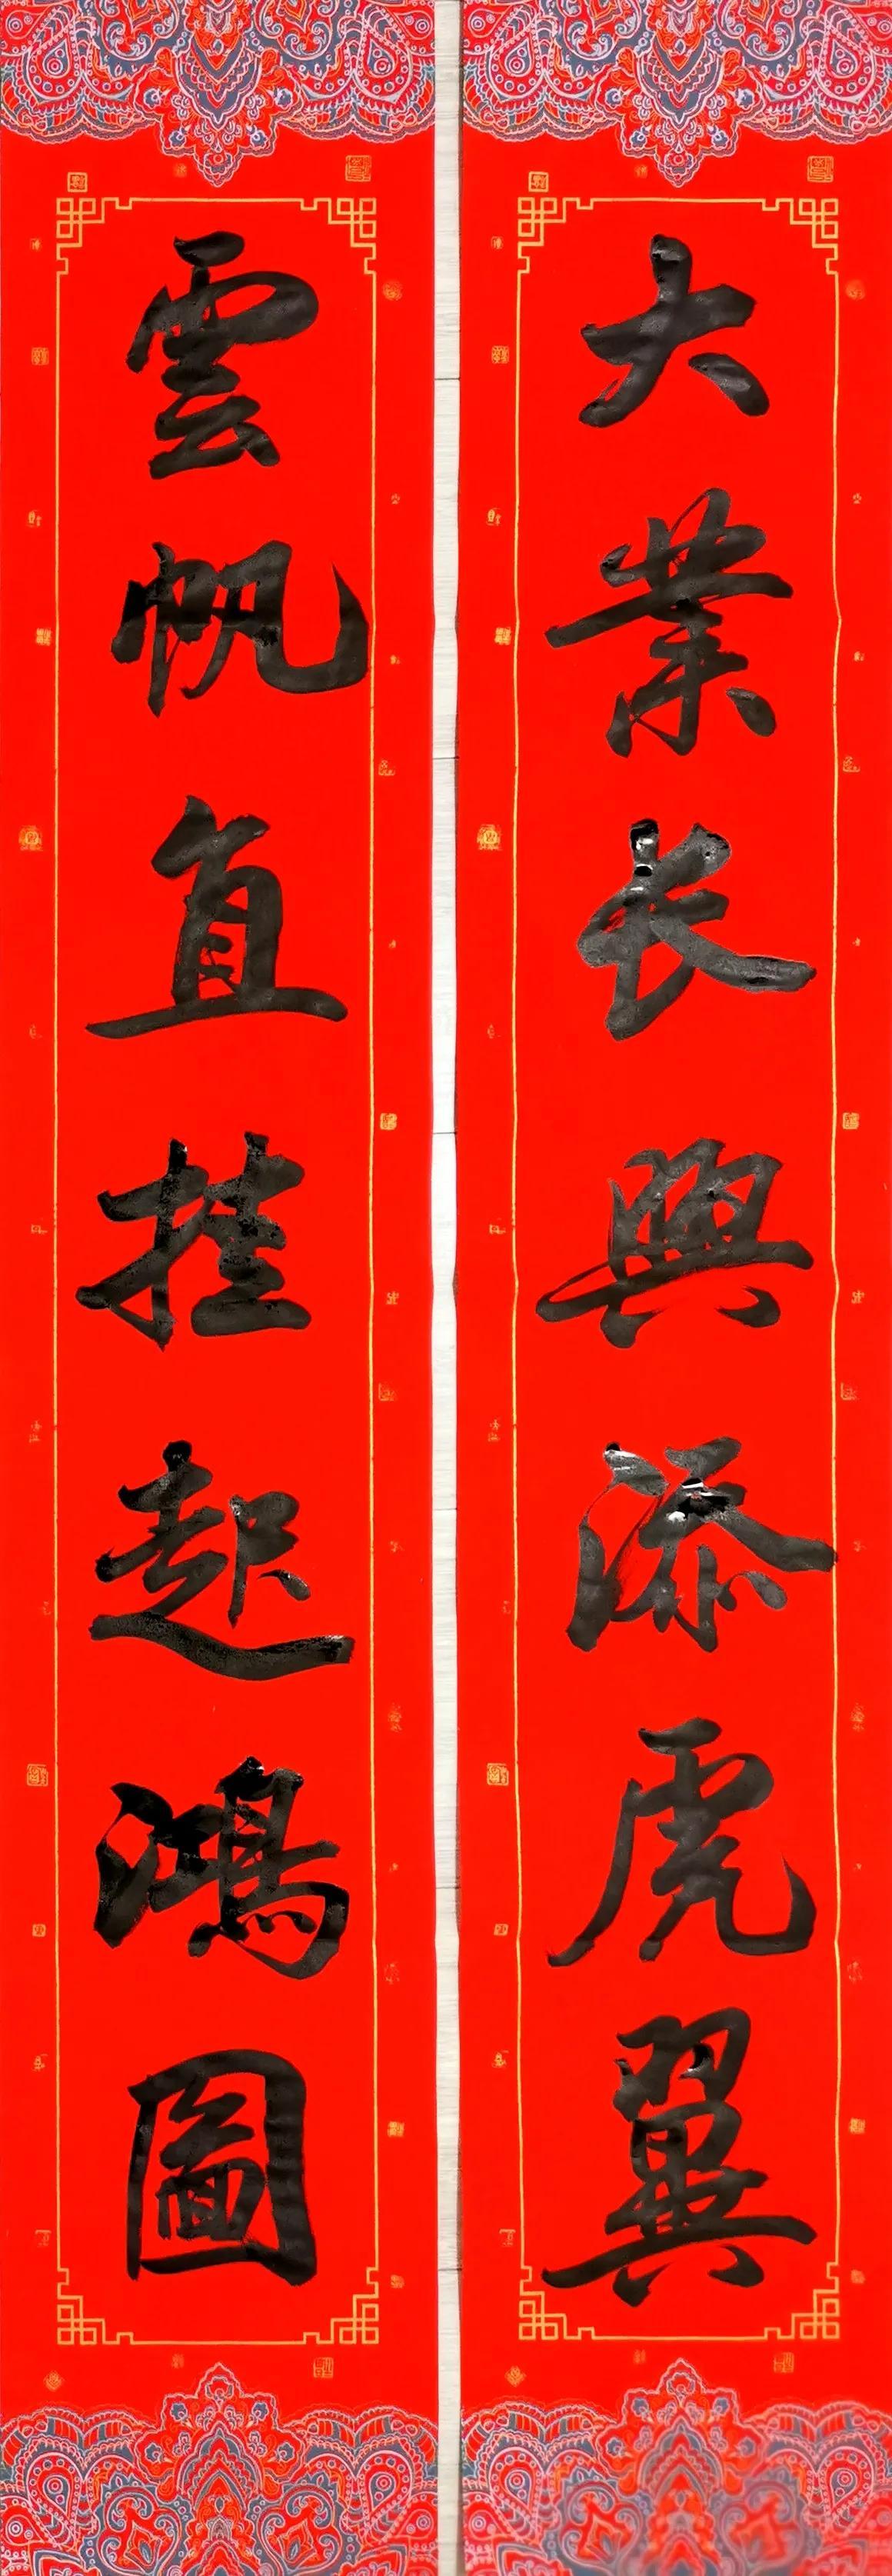 大業长興添虎翼
雲帆直挂起鴻圖